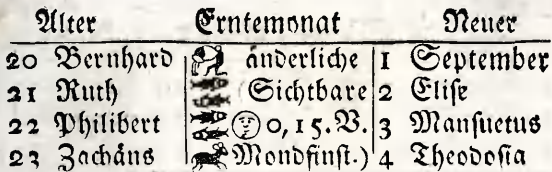 Alter Erntemonat Neuer
20 Bernhard änderliche 1 September
21 Ruth Sichtbare 2 Elise
22 Philibert 0, 15. V. 3 Mansuetus
23 Zachäus Mondfinst.) 4 Theodosia